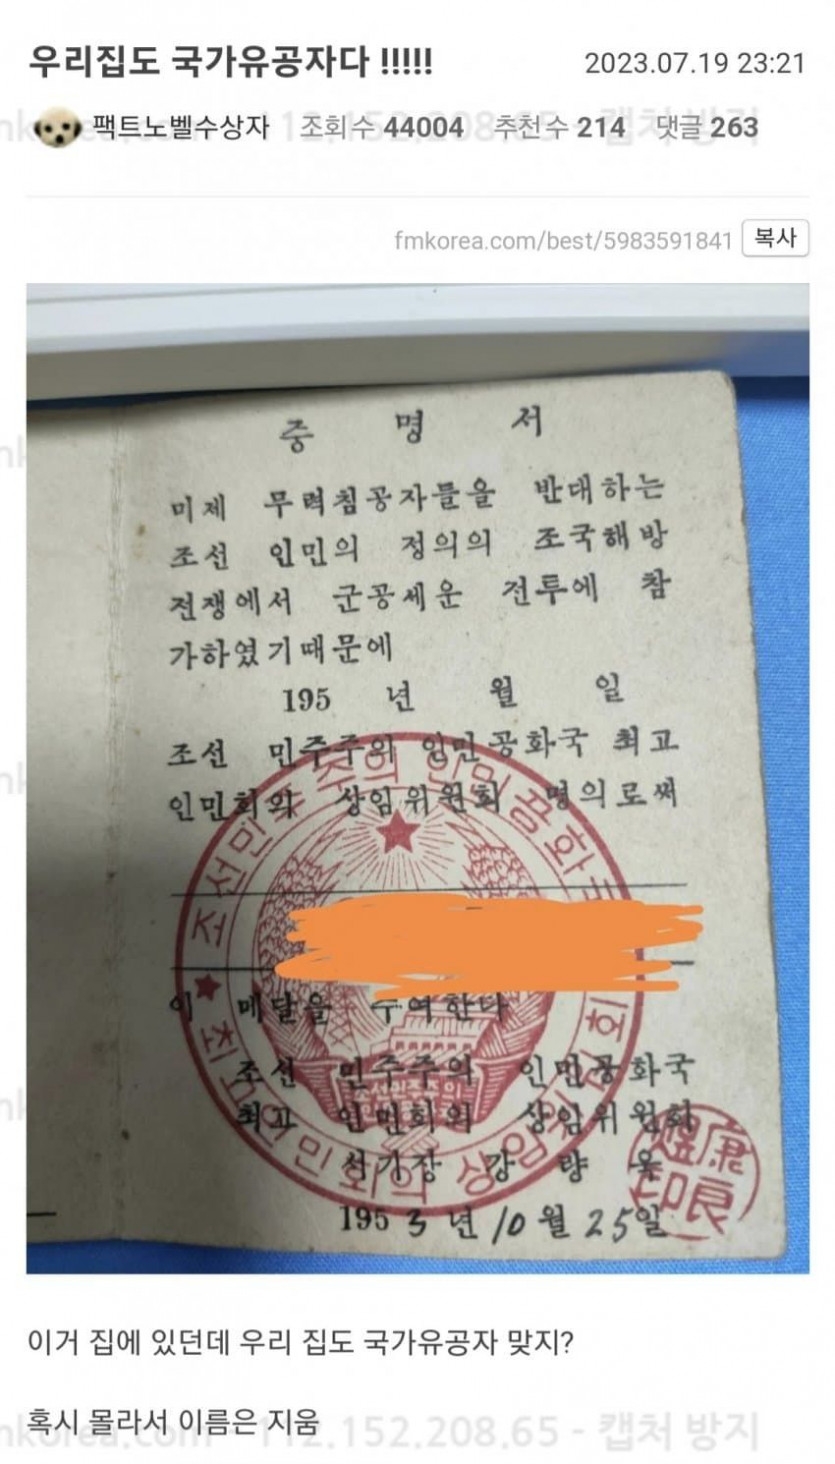 우리집도 국가유공자다 !!!!!
2023.07.19 23:21
팩트노벨수상자 조회수 44004 추천수 214 댓글 263
fmkorea.com/best/5983591841 복사
증 명 서
미제 무력침공자들을 반대하는
조선 인민의 정의의 조국해방
전쟁에서 군공세운 전투에 참
가하였기때문에
195 년 월 일
조선 민주주의 인민공화국 최고
인민회의 상임위원회 명의로써
이 메달을 수여한다
조선 민주주의 인민공화국
최고 인민회의 상임위원회
서기장 강 량 욱
1953년 10월 25일
이거 집에 있던데 우리 집도 국가유공자 맞지?
혹시 몰라서 이름은 지움
112.152.208.65 - 캡처 방지